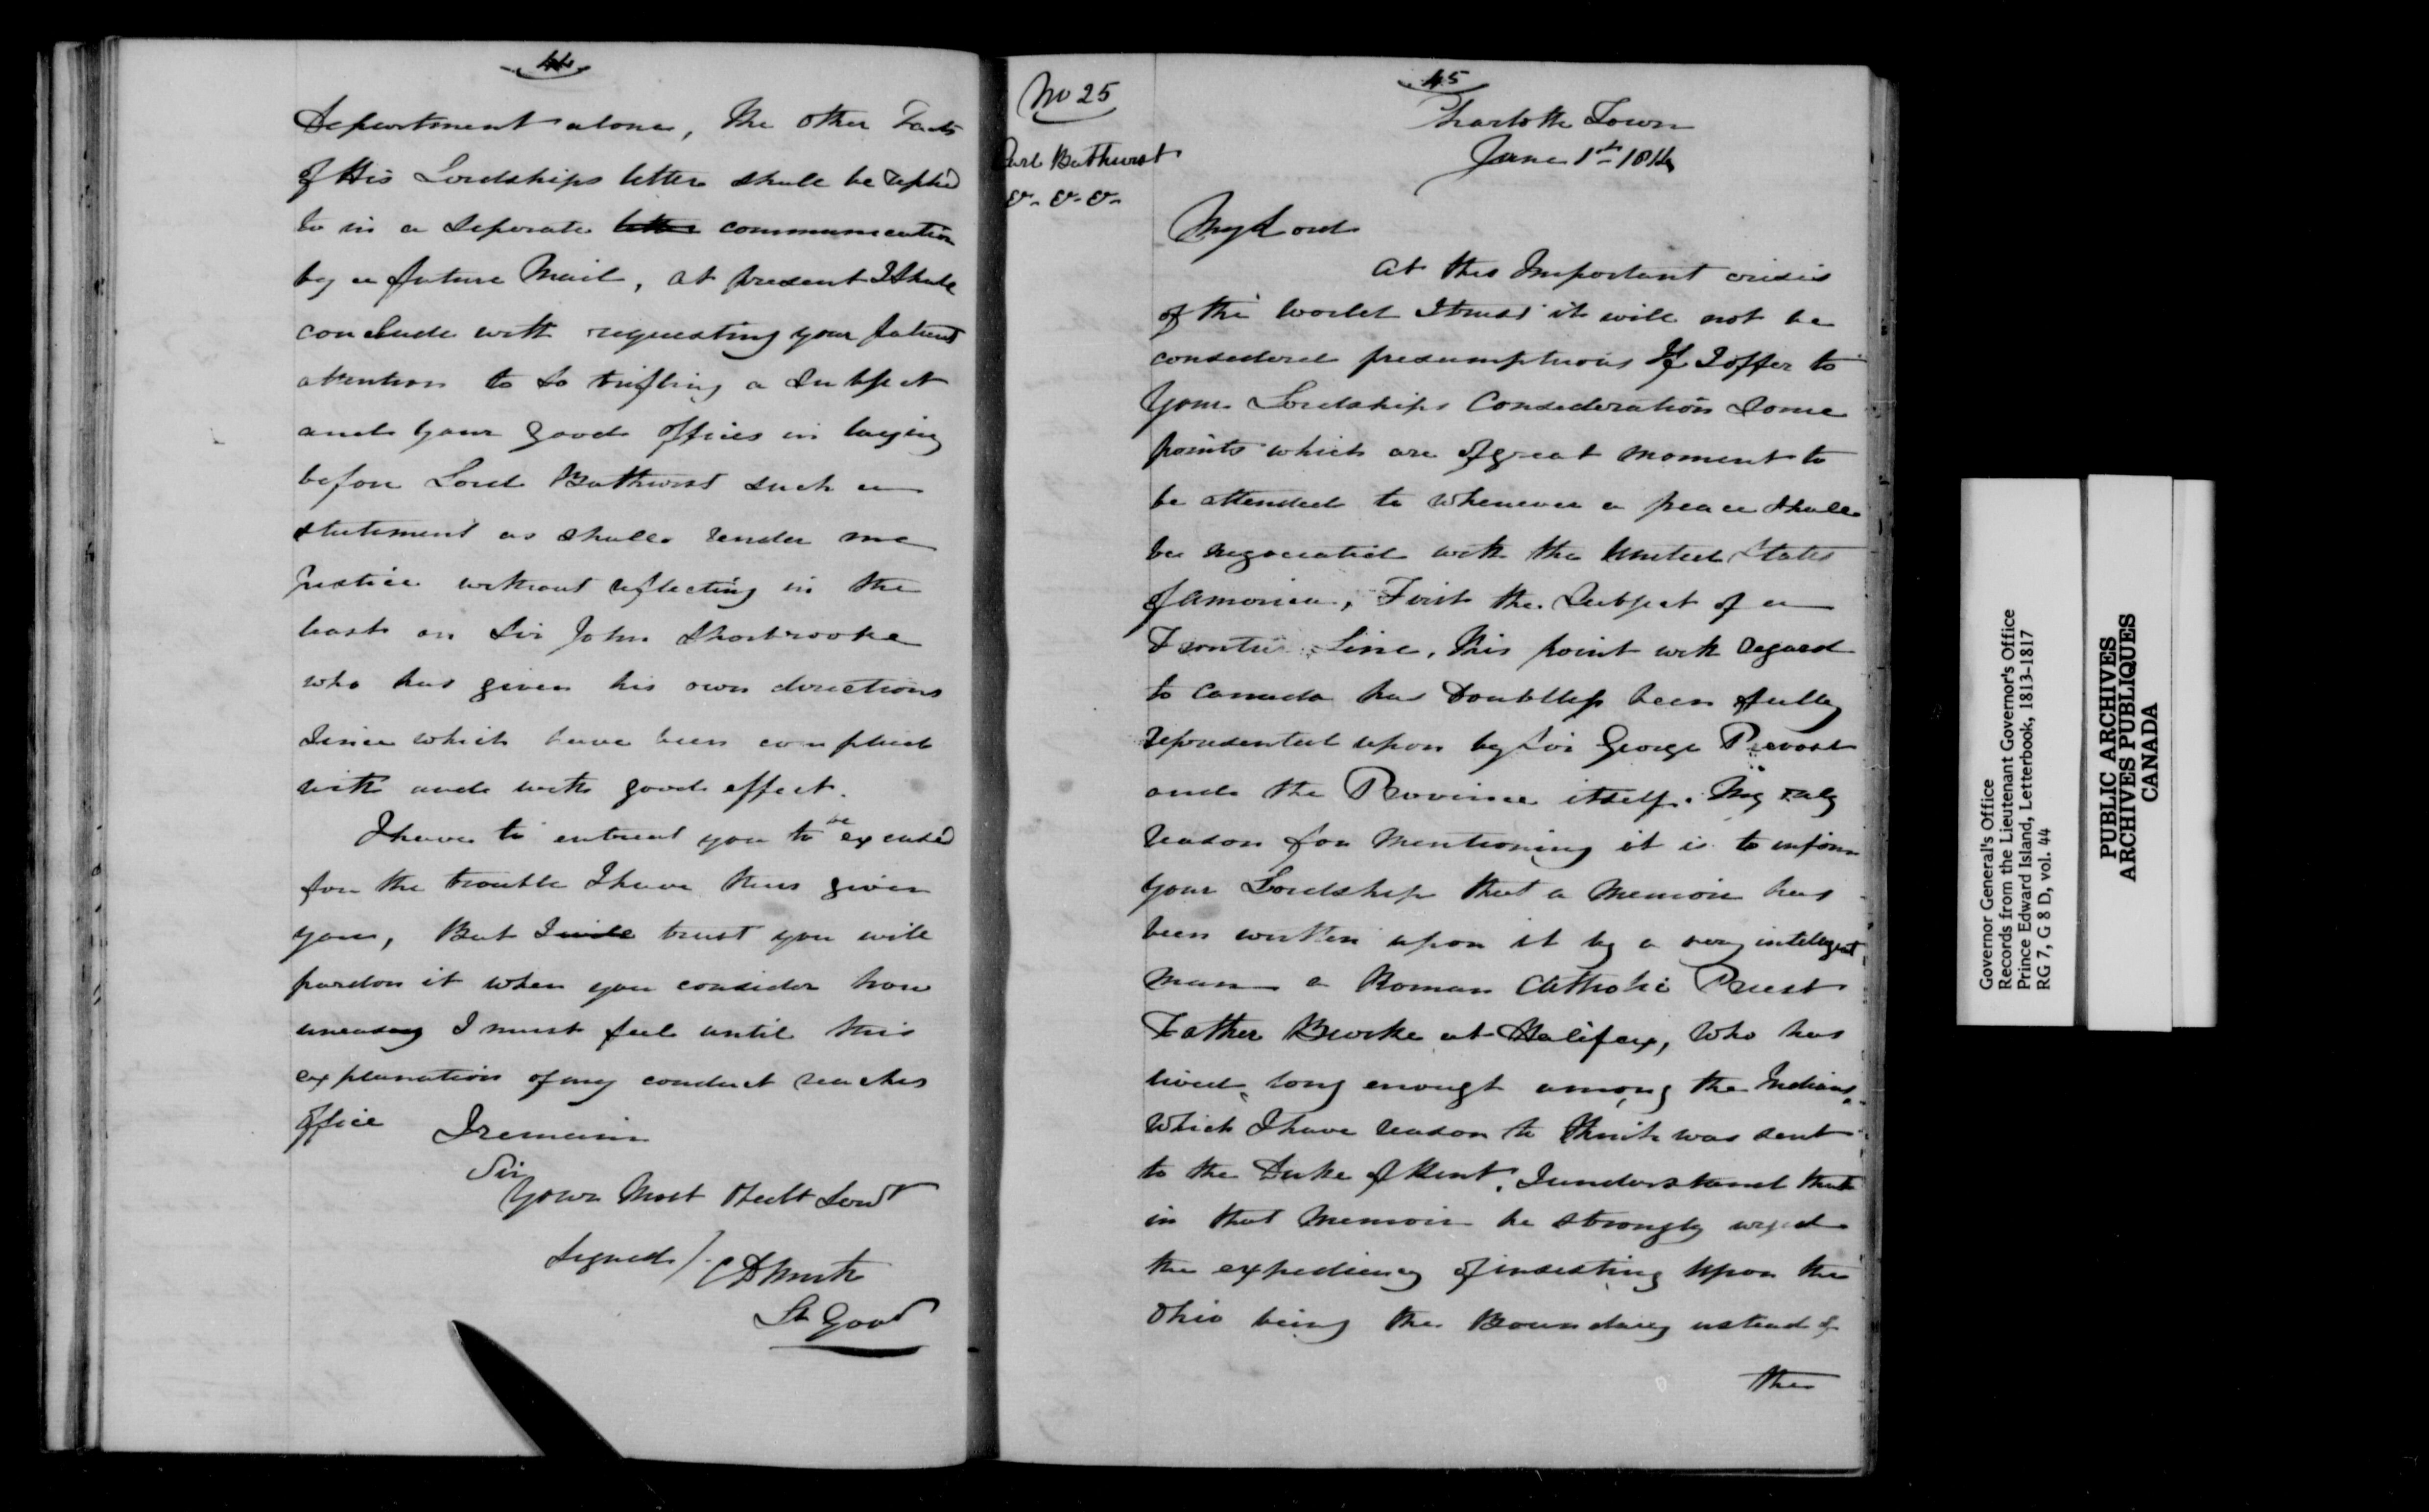 44
Department alone, The other Parts
of His Lordships letter shall be replied
to in a Seperate letter communication
by a future Mail, at present I shall
conclude with requesting your patient
attention to so trifling a Subject
and your good offices in laying
before Lord Bathurst such a
statement as shall render me
Justice without reflecting in the
least on Sir John Sherbrooke
who has given his own directions
Since which have been complied
with and with good effect.
I have to entreat you to be excused
for the trouble I have thus given
you, But I will trust you will
pardon it when you consider how
uneasy I must feel until this
explanation of my conduct reaches
office I remain
Sir
Your Most Obedt Servt
Signed /. C D Smith
Lt Govr
No 25
Earl Bathurst
&. &. &.
45
Charlotte Town
June 1st 1814
My Lord
At this Important crisis
of the World I trust it will not be
considered presumptuous If I offer to
Your Lordships Consideration Some
points which are of great moment to
be attended to whenever a peace shall
be negociated with the United States
of America, First the Subject of a
Frontier Line, This point with regard
to Canada has Doubtless been fully
represented upon by Sir George Prevost
and the Province itself. My only
reason for Mentioning it is to inform
your Lordship that a Memoir has
been written upon it by a very intelligent
man a Roman Catholic Priest
Father Burke at Halifax, Who has
lived long enough among the Indians,
Which I have reason to think was sent
to the Duke of Kent. I understand that
in that Memoir he strongly urged
the expediency of insisting upon the
Ohio being the Boundary instead of
the
Governor General's Office
Records from the Lieutenant Governor's Office
Prince Edward Island, Letterbook, 1813-1817
RG 7, G 8 D, vol. 44
PUBLIC ARCHIVES
ARCHIVES PUBLIQUES
CANADA